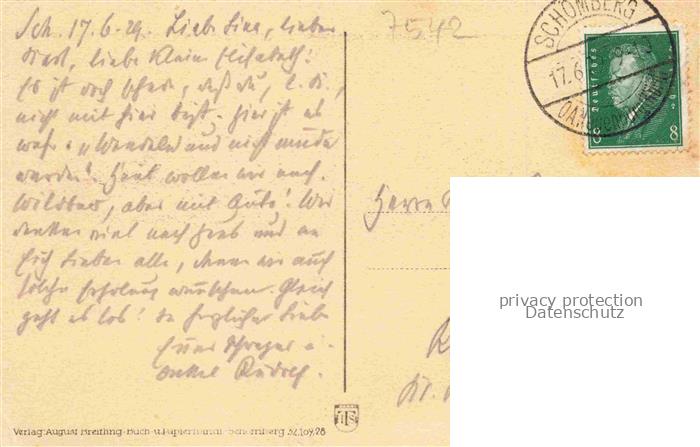 Sch. 17.6.29. Liebe Lina, lieber
liebe kleine Elisabeth!
Es ist doch schade, daß du, l. K.,
nicht mit hier bist. Hier ist es
wahr: „Wandeln und nicht müde
werden". Heut wollen wir nach
Wildbad, aber mit Auto! Wir
denken viel nach Haus und an
Euch Lieben alle, denen wir auch
solche Erholung wünschen. Gleich
geht es los! In herzlicher Liebe
Euer Schwager u.
Onkel Rudolf.
7542
SCHÖMBERG
17.6.
Deutsches
8 8
Herrn
privacy protection
Datenschutz
Verlag: August Breithng-Buch-u.Papierhandl. Schömberg